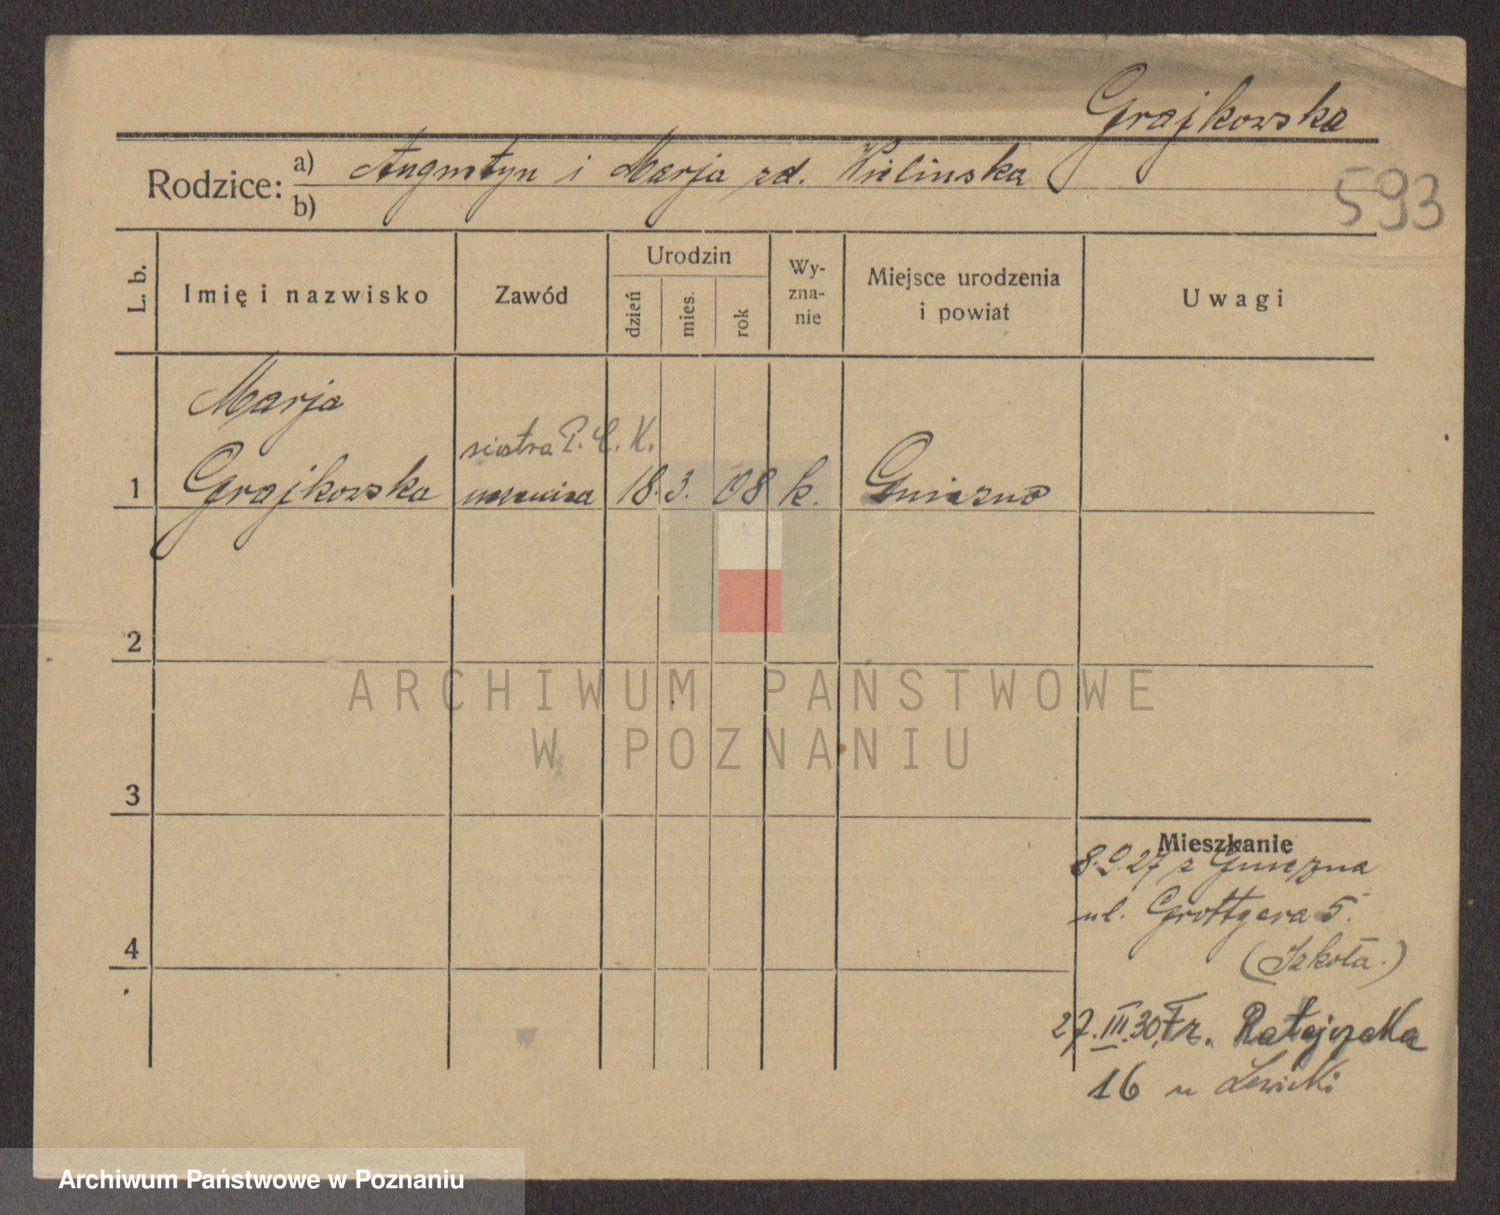 Grajkowska
Rodzice: a) Augustyn i Marja zd. Wielinska
b)
593
L. b.
Imię i nazwisko
Zawód
Urodzin
dzień
mies.
rok
Wy-
zna-
nie
Miejsce urodzenia
i powiat
Uwagi
Marja
siostra P. C. K.
1 Grajkowska uczenica 18. 3. 08 k. Gniezno
2
ARCHIWUM PAŃSTWOWE
W POZNANIU
3
Mieszkanie
27 z Gniezna
ul. Grottgera 5.
(Szkoła.)
4
27.III.30 Fr. Ratajczaka
16 u Lewicki
Archiwum Państwowe w Poznaniu